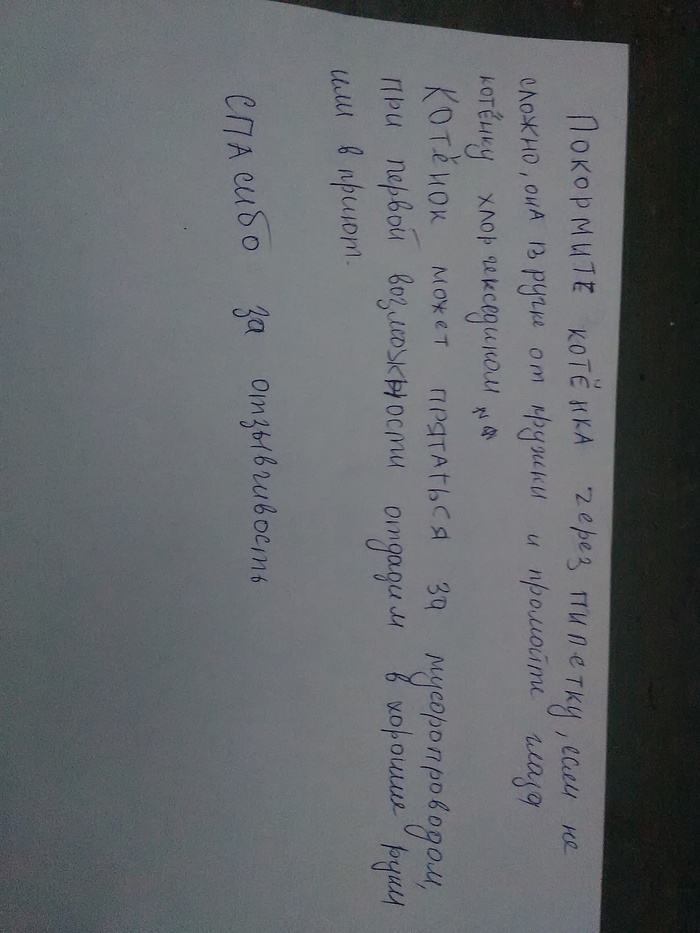 Покормите котёнка через пипетку, если не
сложно, она в ручке от кружки и промойте глаза
котёнку хлоргекседином
Котёнок может прятаться за мусоропроводом,
при первой возможности отдадим в хорошие руки
или в приют.
Спасибо за отзывчивость